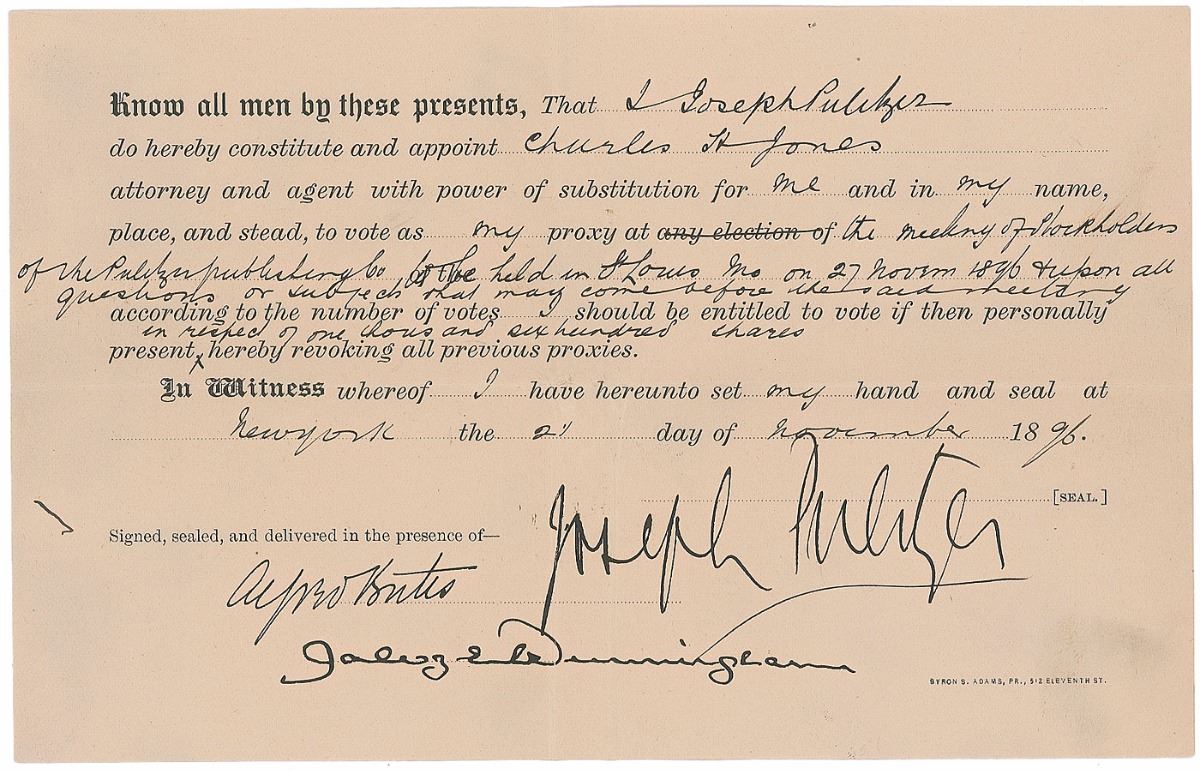 Know all men by these presents, That I Joseph Pulitzer
do hereby constitute and appoint Charles H Jones
attorney and agent with power of substitution for me and in my name,
place, and stead, to vote as my proxy at any election of the meeting of Stockholders
of the Pulitzer publishing Co to be held in St Louis Mo on 27 Novem 1896 & upon all
questions or subjects that may come before the said meeting
according to the number of votes I should be entitled to vote if then personally
in respect of one thousand six hundred shares
present, hereby revoking all previous proxies.
In Witness whereof I have hereunto set my hand and seal at
New York the 21 day of November 1896.
[SEAL.]
Signed, sealed, and delivered in the presence of—
Joseph Pulitzer
Alfred Butes
Cunningham
BYRON S. ADAMS, PR., 512 ELEVENTH ST.